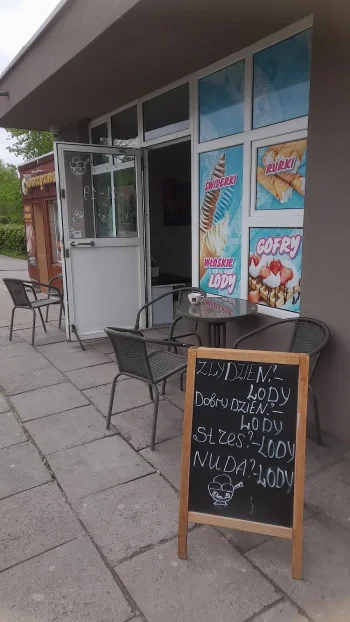 ŚWIDERKI
WŁOSKIE
LODY
RURKI
GOFRY
ZŁY DZIEŃ?-
LODY
DObRY DZIEŃ:-
LODY
StREs?-LODY
NUDA?-LODY